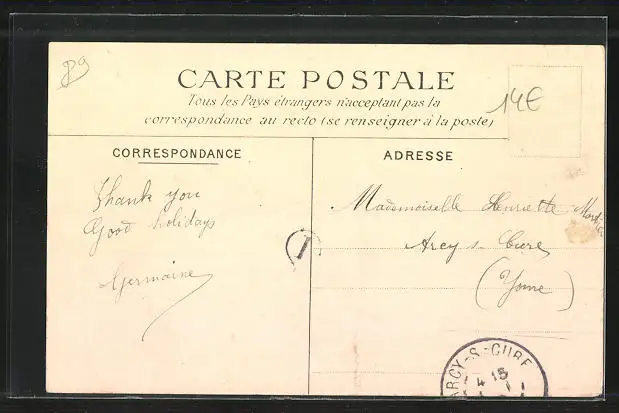 89
CARTE POSTALE
Tous les Pays étrangers n'acceptant pas la
correspondance au recto (se renseigner à la poste)
14€
CORRESPONDANCE
ADRESSE
Thank you
Good holidays
Germaine
Mademoiselle Henriette
Arcy s. Cure
(Yonne)
I
ARCY-S-CURE
4 15